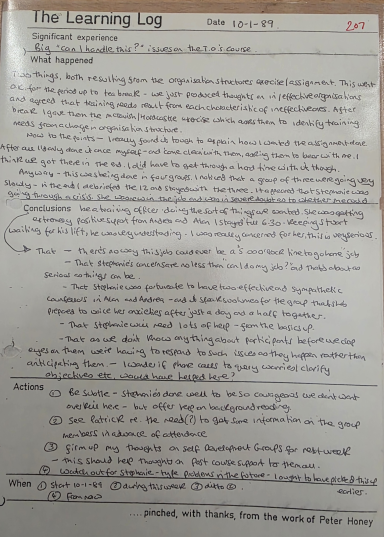 The Learning Log Date 10-1-89 207
Significant experience
Big "can I handle this?" issues on the T.O's course.
What happened
Two things, both resulting from the organisation structures exercise/assignment. This went
o.k. for the period up to tea break - we just produced thoughts on in/effective organisations
and agreed that training needs result from each characteristic of ineffectiveness. After
break I gave them the exercise which asks them to identify training
needs from a change in organisation structure.
Now to the points - I really found it tough to explain how I wanted the assignment done
After all I'd only done it once myself - and I was clear with them, asking them to bear with me. I
think we got there in the end. I did have to get through a hard time with it though.
Anyway - this was being done in four groups. I noticed that a group of three were going very
slowly - in the end I debriefed the 12 and stayed with the three. It appeared that Stephanie was
going through a crisis. She was new in the job and was in severe doubt as to whether she could
Conclusions be a training officer doing the sort of things we wanted. She was getting
extremely positive support from Andrea and Alan. I stayed till 6.30 - keeping Stuart
waiting for his lift, he was very understanding. I was really concerned for her, this is very serious
That - there's no way this job could ever be a 5 o'clock line to go home job
- That Stephanie's concerns are no less than can I do my job? and that's about as
serious as things can be.
- That Stephanie was fortunate to have two effective and sympathetic
counsellors in Alan and Andrea - and it speaks volumes for the group that she's
prepared to voice her anxieties after just a day and a half together.
- That Stephanie will need lots of help - from the basics up.
- That as we don't know anything about participants before we clap
eyes on them we're having to respond to such issues as they happen rather than
anticipating them. - I wonder if phone calls to query worries, clarify
objectives etc. would have helped here?
Actions
① Be subtle - Stephanie's done well to be so courageous we don't want
overkill here - but offer help on background reading.
② See Patrick re. the need(?) to get some information on the group
members in advance of attendance
③ Firm up my thoughts on Self Development Groups for next week
- this should help thoughts on post course support for them all.
④ Watch out for Stephanie-type problems in the future - I ought to have picked this up
earlier.
When ① Start 10-1-89 ② during this week ③ ditto ②.
④ From now
.....pinched, with thanks, from the work of Peter Honey